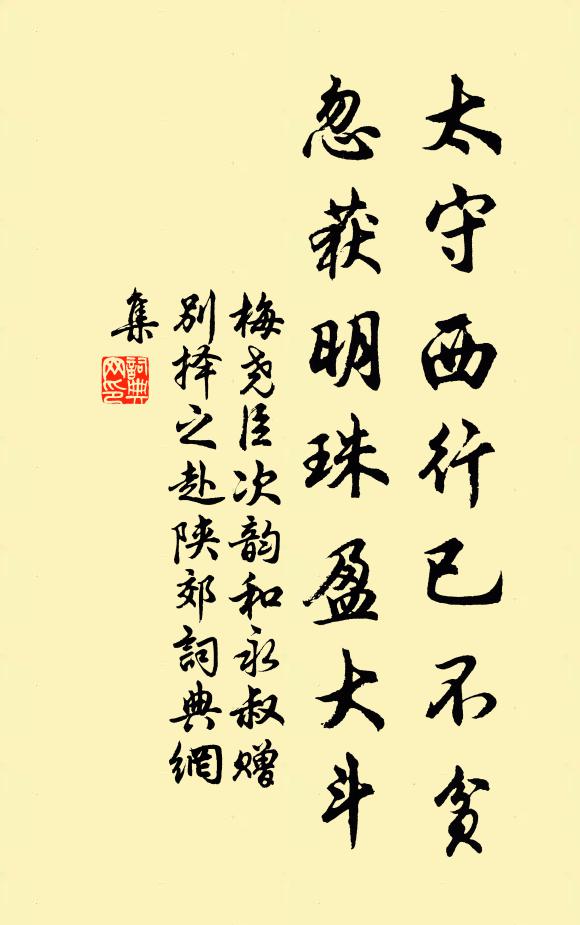 太守西行已不贫
忽获明珠盈大斗
梅尧臣次韵和永叔赠
别择之赴陕郊詞典網
集
詞典
网印